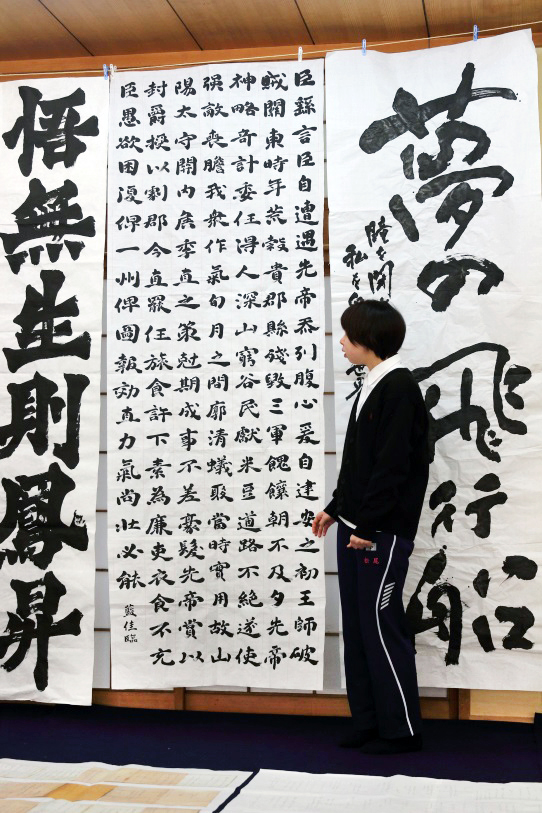 夢の飛行船
臣繇言臣自遭遇先帝忝列腹心爰自建安之初王師破
賊關東時年荒穀貴郡縣殘毀三軍餽饟朝不及夕先帝
神略奇計委任得人深山窮谷民獻米豆道路不絕遂使
强敵喪膽我衆作氣旬月之間廓清蟻聚當時實用故山
陽太守關内侯季直之策尅期成事不差豪髮先帝賞以
封爵授以劇郡今直罷任旅食許下素為廉吏衣食不充
臣愚欲困復俾一州俾圖報効直力氣尚壯必能
佳臨
悟無生則鳳昇